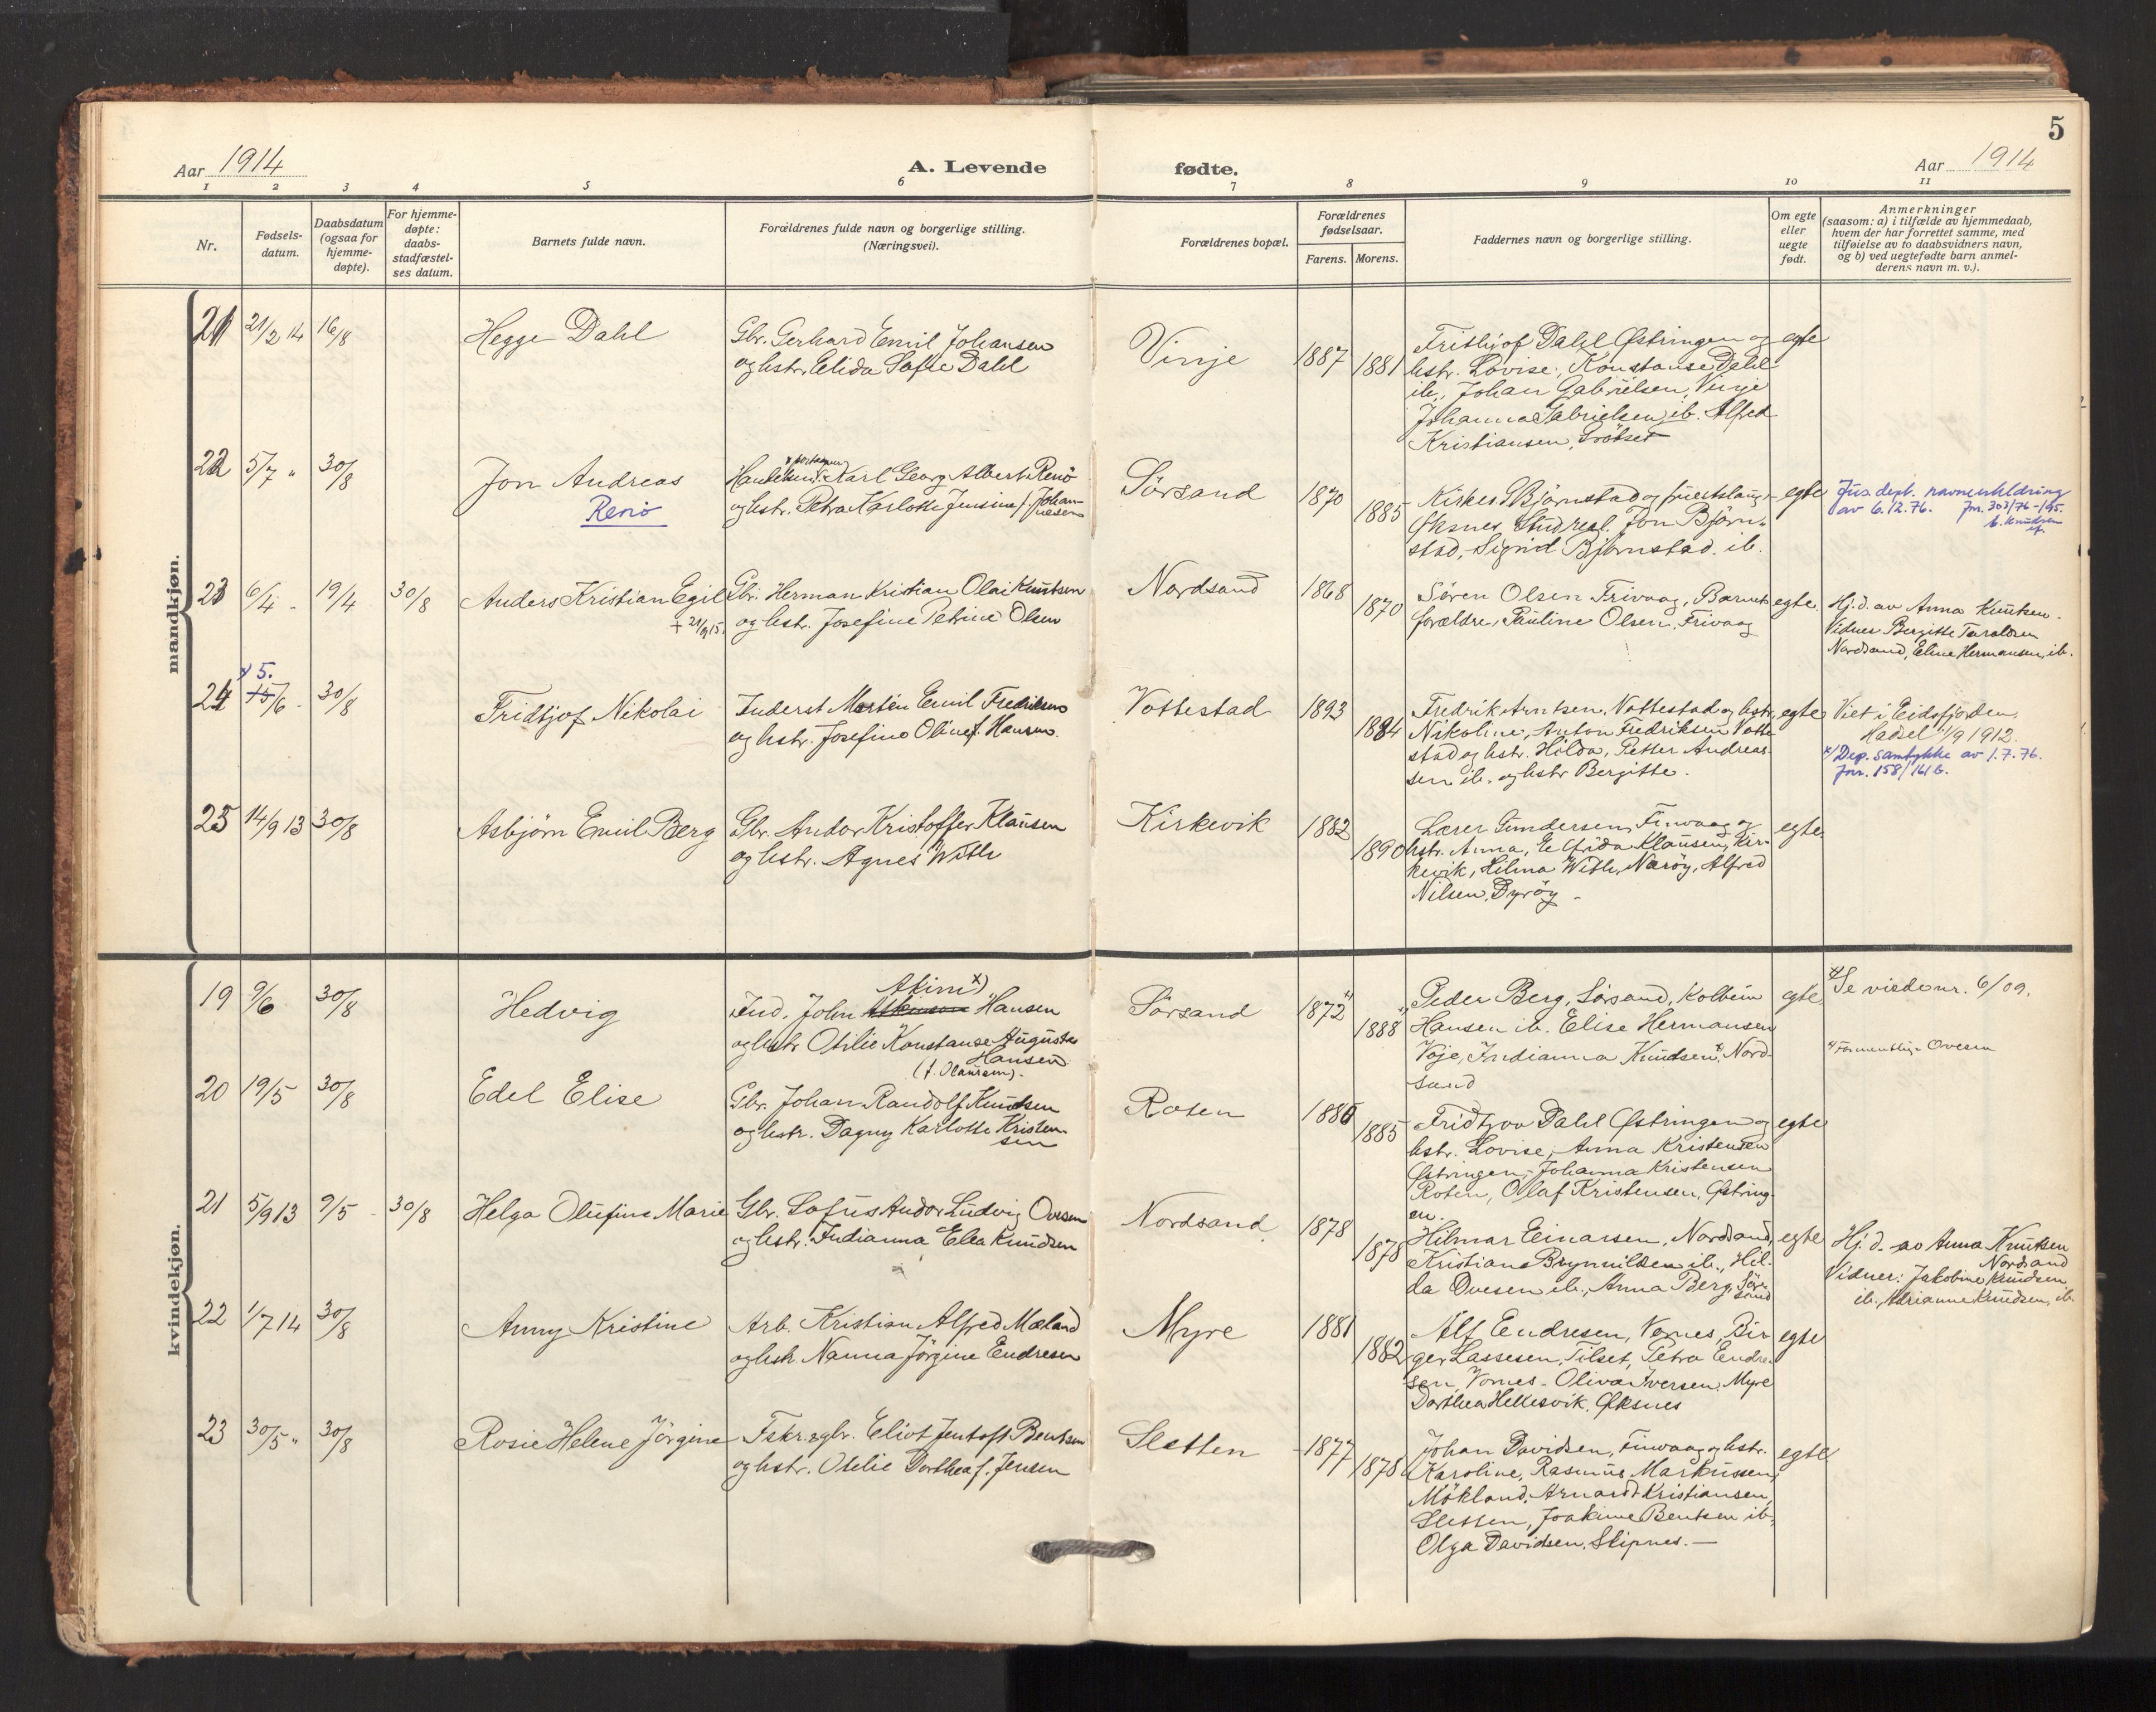 5
Aar 1914
A. Levende fødte.
Aar 1914
1 2 3 4 5 6 7 8 9 10 11
Nr.
Fødsels-
datum.
Daabsdatum
(ogsaa for
hjemme-
døpte).
For hjemme-
døpte:
daabs-
stadfæstel-
ses datum.
Barnets fulde navn.
Forældrenes fulde navn og borgerlige stilling.
(Næringsvei).
Forældrenes bopæl.
Forældrenes
fødselsaar.
Farens. Morens.
Faddernes navn og borgerlige stilling.
Om egte
eller
uegte
født.
Anmerkninger
(saasom: a) i tilfælde av hjemmedaab,
hvem der har forrettet samme, med
tilføielse av to daabsvidners navn,
og b) ved uegtefødte barn anmel-
derens navn m. v.).
mandkjøn.
21 21/2 14 16/8
Hegge Dahl
Gbr. Gerhard Emil Johansen
og hstr. Elida Sofie Dahl
Vinje
1887 1881
Frithjof Dahl Østringen og
hstr. Lovise, Konstanse Dahl
ib., Johan Gabrielsen, Vinje
Johanna Gabrielsen ib. Alfred
Kristiansen,
egte
22 5/7 " 30/8
Jon Andreas
Renö
Karl Georg Albert Renö
og hstr. Petra Karlotte Jensine f. Johan-
nesen
Sörsand
1870 1885
Kirkes. Bjørnstad og
Øksnes, Stud real. Jon Bjørn-
stad, Sigrid Bjørnstad. ib.
egte
Jus. dept. navneendring
av 6.12.76. Jnr. 303/76
23 6/4 - 19/4 30/8
Anders Kristian Egil
+ 21/9 15
Gbr. Herman Kristian Olai Knutsen
og hstr. Josefine Petrine Olsen
Nordsand
1868 1870
Sören Olsen Frivaag, Barnets
forældre, Pauline Olsen, Frivaag
egte
Hj.d. av Anna Knutsen.
Vidner Bergitte Taraldsen
Nordsand, Eline Hermansen, ib.
24 x) 5. 15/6 - 30/8
Fridtjof Nikolai
Inderst Martin Emil Fredriksen
og hstr. Josefine Oline f. Hansen.
Vottestad
1893 1894
Fredrik Arntsen, Vottestad og hstr.
Nikoline, Anton Fredriksen Votte-
stad og hstr. Hilda, Petter Andreas-
sen ib. og hstr Bergitte.
egte
Viet i Eidsfjorden,
Hadsel 1/9 1912.
x) Dep. samtykke av 1.7.76.
Jnr. 158/161 B.
25 14/9 13 30/8
Asbjörn Emil Berg
Gbr. Andor Kristoffer Klausen
og hstr. Agnes With
Kirkevik
1882 1890
Lærer Gundersen, Finvaag og
hstr. Anna, Elfrida Klausen, Kir-
kevik, Hilma With, Naröy, Alfred
Nilsen, Dyröy -
egte
kvindekjøn.
19 9/6 30/8
Hedvig
Akim x)
Ind. John Hansen
og hstr Otilie Konstanse Augusta
Hansen
(f. Olausen).
Sörsand
1872 x) 1888 x)
Peder Berg, Sörsand, Kolbein
Hansen ib. Elise Hermansen
Voje, Indianna Knudsen x, Nord-
sand
egte
x) Se vielse nr. 6/09.
x) Formentlig Ovesen
20 19/5 30/8
Edel Elise
Gbr. Johan Randolf Knudsen
og hstr. Dagny Karlotte Kristen-
sen
Roten
1886 1885
Fridtjov Dahl Østringen og
hstr. Lovise, Anna Kristensen
Østringen, Johanna Kristensen
Roten, Olaf Kristensen, Østring-
en.
egte
21 5/9 13 9/5 - 30/8
Helga Olufine Marie
Gbr. Sofus Andor Ludvig Ovesen
og hstr. Indianna Elea Knudsen
Nordsand
1878 1878
Hilmar Einarsen, Nordsand,
Kristian Brynnilsen ib., Hil-
da Ovesen ib., Anna Berg, Sör-
sand
egte
Hj.d. av Anna Knutsen
Nordsand
Vidner: Jakobine Knudsen
ib., Adrianne Knudsen, ib.
22 1/7 14 30/8
Anny Kristine
Arb. Kristian Alfred Mæland
og hstr. Nanna Jörgine Endresen
Myre
1881 1882
Alf Endresen, Vornes, Bir-
ger Lassesen, Tilset, Petra Endre-
sen, Vornes - Oliva Iversen, Myre
Dorthea Hellesvik. Øksnes
egte
23 30/5 " 30/8
Rosie Helene Jörgine
Fskr. & gbr. Eliot Jentoft Bentsen
og hstr. Otelie Dorthea f. Jensen
Sletten
1877 1878
Johan Davidsen, Finvaag og hstr.
Karoline, Rasmus Markussen,
Mökland, Arnardt Kristiansen,
Sletten, Joakime Bentsen ib,
Olga Davidsen. Skipnes. -
egte